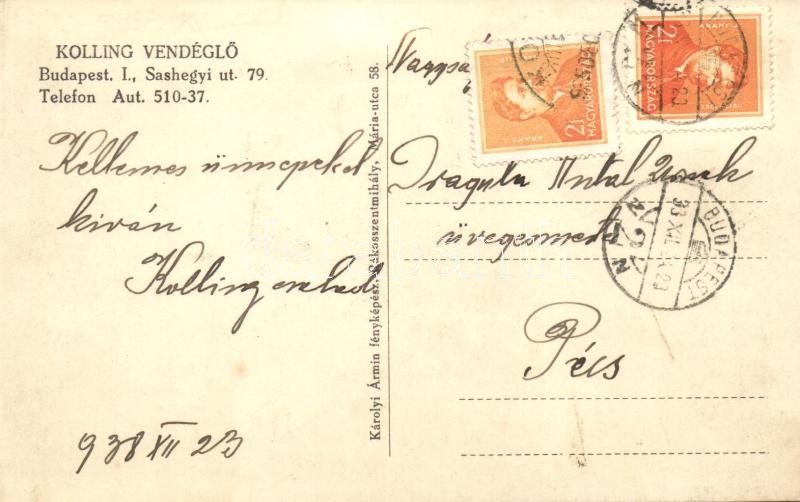 KOLLING VENDÉGLŐ
Budapest. I., Sashegyi ut 79.
Telefon Aut. 510-37.
Kellemes ünnepeket
kiván
Kolling család
938 XII 23
Károlyi Ármin fényképész, Rákosszentmihály, Mária-utca 58.
2f
MAGYARORSZÁG
ARANY J.
2f
MAGYARORSZÁG
ARANY J.
BUDAPEST
Antal Urnak
üvegesmester
Pécs